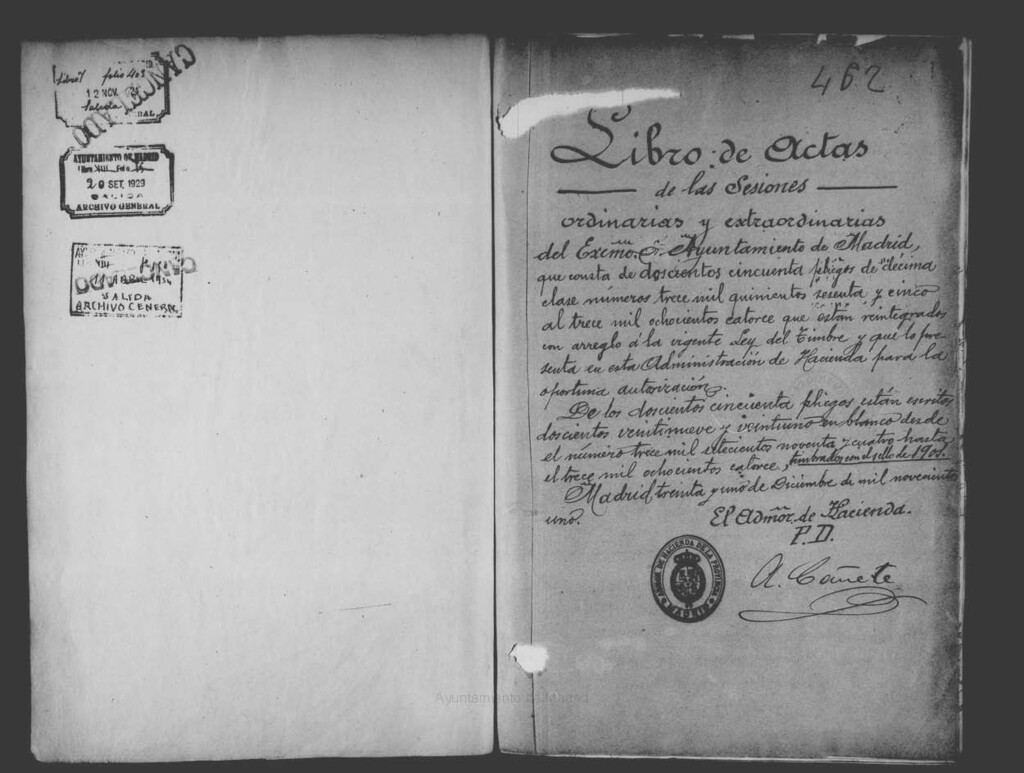 Libro 7 folio 403
12 NOV.
Salida
CANCELADO
AYUNTAMIENTO DE MADRID
20 SET. 1929
SALIDA
ARCHIVO GENERAL
ABR 1934
CANCELADO
SALIDA
ARCHIVO GENERAL
462
Libro de Actas
de las Sesiones
ordinarias y extraordinarias
del Excmo. Ayuntamiento de Madrid,
que consta de doscientos cincuenta pliegos de decima
clase números trece mil quinientos sesenta y cinco
al trece mil ochocientos catorce que están reintegrados
con arreglo á la vigente Ley del Timbre y que lo pre-
senta en esta Administración de Hacienda para la
oportuna autorización.
De los doscientos cincuenta pliegos están escritos
doscientos veintinueve y veintiuno en blanco desde
el número trece mil setecientos noventa y cuatro hasta
el trece mil ochocientos catorce, timbrados con el sello de 1901.
Madrid treinta y uno de Diciembre de mil novecientos
uno.
El Admor. de Hacienda.
P.D.
A. Cañete
ADMOR DE HACIENDA DE LA PROVINCIA
MADRID
Ayuntamiento de Madrid